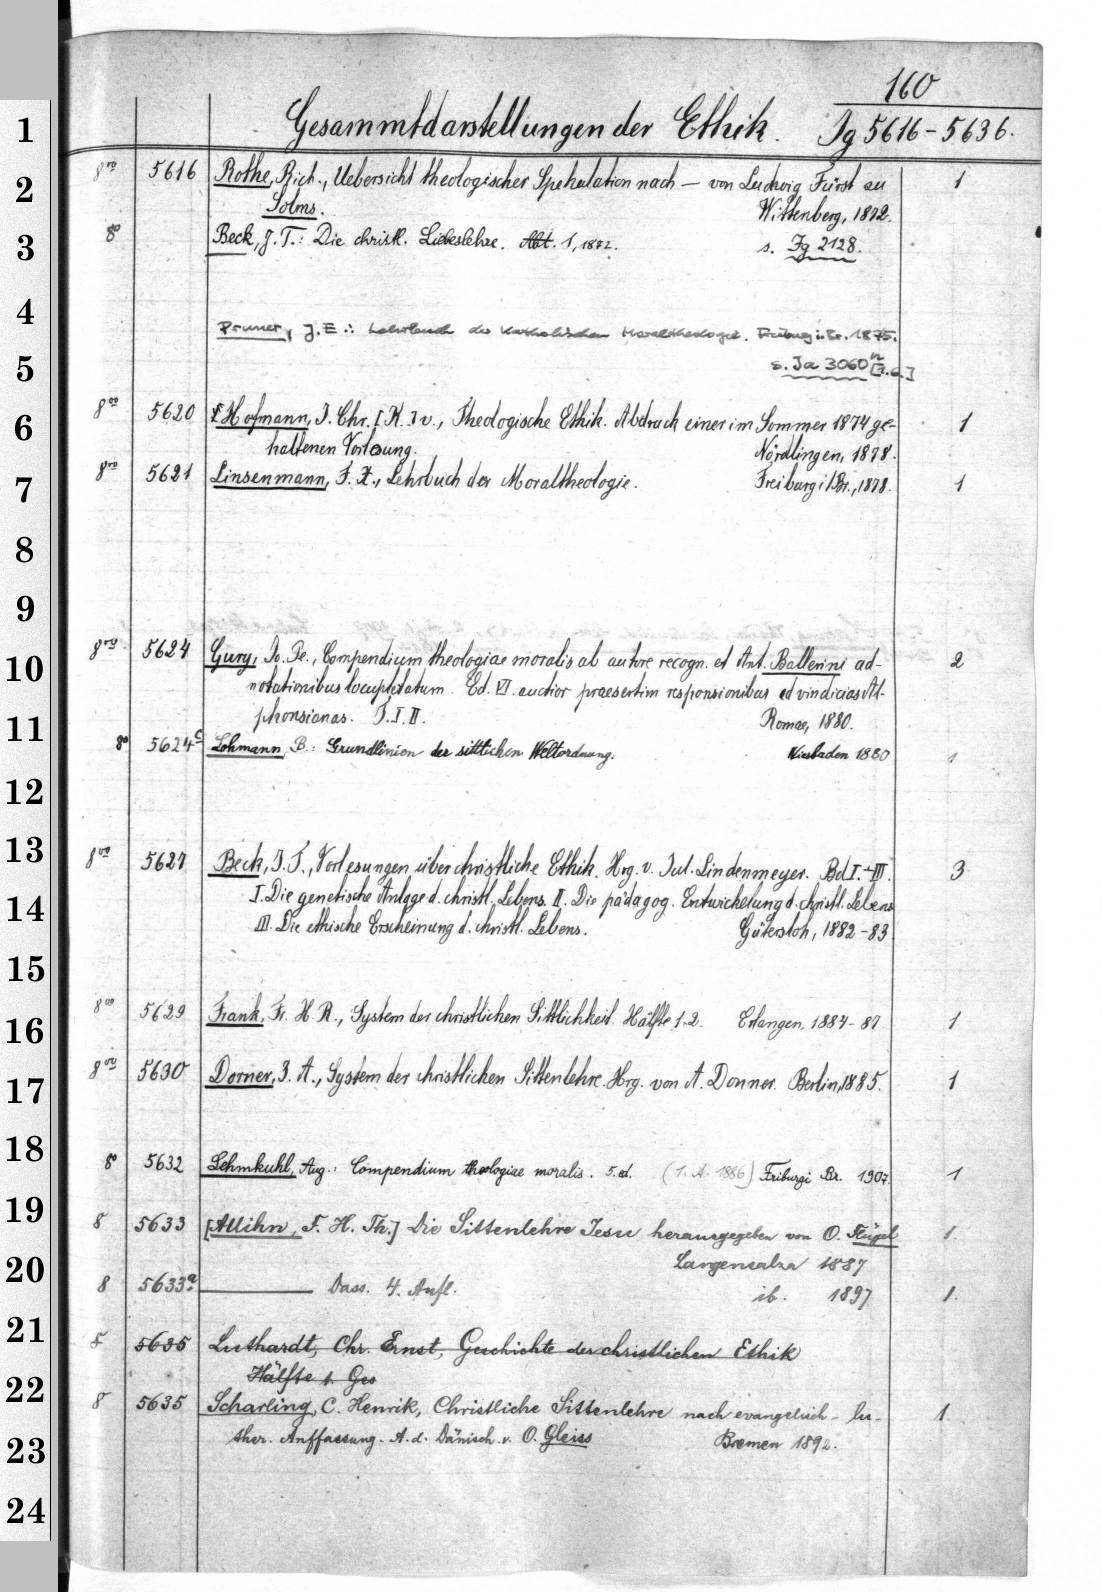 160
Gesammtdarstellungen der Ethik. Jg 5616-5636.
8vo 5616 Rothe, Rich., Uebersicht theologischer Spekulation nach — von Ludwig Fürst zu 1
Solms. Wittenberg, 1872.
8° Beck, J. T.: Die christl. Liebeslehre. Abt. 1, 1872. s. Jg 2128.
Pruner, J. E.: Lehrbuch der katholischen Moraltheologie. Freiburg i. Br. 1875.
s. Ja 3060
8vo 5620 Hofmann, J. Chr. [K.] v., Theologische Ethik. Abdruck einer im Sommer 1874 ge- 1
haltenen Vorlesung. Nördlingen, 1878.
8vo 5621 Linsenmann, F. X., Lehrbuch der Moraltheologie. Freiburg i/Br., 1878. 1
8vo 5624 Gury, Jo. Pe., Compendium theologiae moralis ab autore recogn. et Ant. Ballerini ad- 2
notationibus locupletatum. Ed. VI. auctior praesertim responsionibus ad vindicias Al-
phonsianas. T. I. II. Romae, 1880.
8° 5624c Lohmann, B.: Grundlinien der sittlichen Weltordnung. Wiesbaden 1880 1
8vo 5627 Beck, J. T., Vorlesungen über christliche Ethik. Hrg. v. Jul. Lindenmeyer. Bd I.-III. 3
I. Die genetische Anlage d. christl. Lebens. II. Die pädagog. Entwickelung d. christl. Lebens
III. Die ethische Erscheinung d. christl. Lebens. Gütersloh, 1882-83
8vo 5629 Frank, Fr. H. R., System der christlichen Sittlichkeit. Hälfte 1.2. Erlangen, 1884-87 1
8vo 5630 Dorner, J. A., System der christlichen Sittenlehre. Hrg. von A. Dorner. Berlin, 1885. 1
8° 5632 Lehmkuhl, Aug.: Compendium theologiae moralis. 5. ed. (1. A. 1886) Friburgi Br. 1907. 1
8 5633 [Allihn, F. H. Th.] Die Sittenlehre Jesu herausgegeben von O. Flügel 1.
Langensalza 1887
8 5633a. ——— Dass. 4. Aufl. ib. 1897 1.
8 5635 Luthardt, Chr. Ernst, Geschichte der christlichen Ethik
Hälfte 1. Ges
8 5635 Scharling, C. Henrik, Christliche Sittenlehre nach evangelisch-lu- 1.
ther. Auffassung. A. d. Dänisch. v. O. Gleiss Bremen 1892.
1
2
3
4
5
6
7
8
9
10
11
12
13
14
15
16
17
18
19
20
21
22
23
24